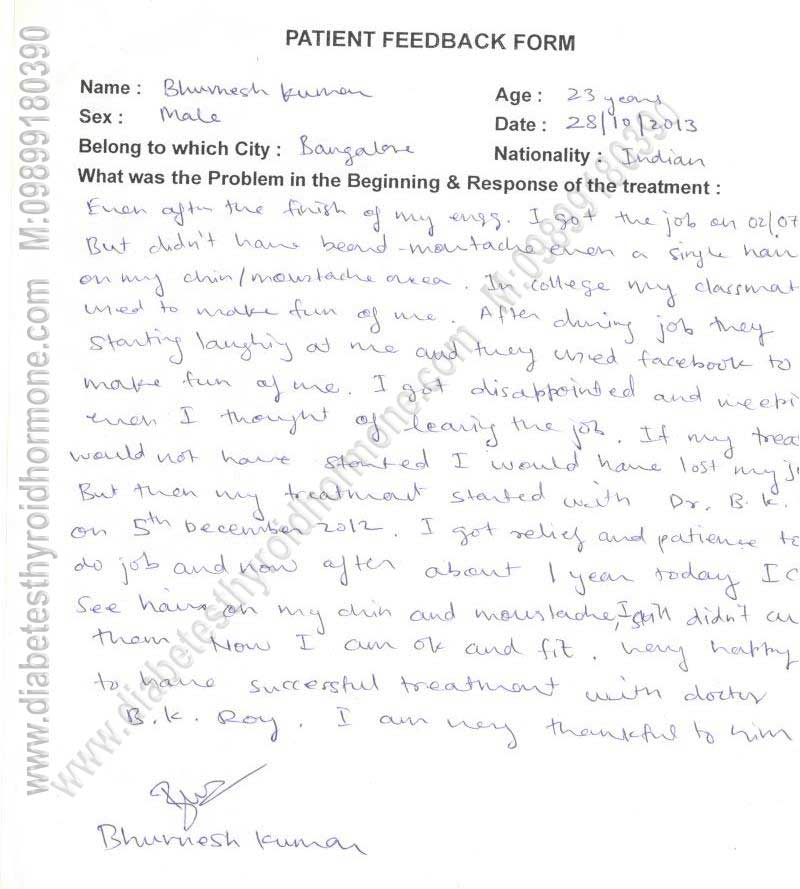 PATIENT FEEDBACK FORM
Name : Bhuvnesh Kumar
Age : 23 years
Sex : Male
Date : 28/10/2013
Belong to which City : Bangalore
Nationality : Indian
What was the Problem in the Beginning & Response of the treatment :
Even after the finish of my engg. I got the job on 02/07
But didn't have beard-moustache even a single hair
on my chin/moustache area. In college my classmat
used to make fun of me. After during job they
starting laughing at me and they used facebook to
make fun of me. I got disappointed and weepi
even I thought of leaving the job. If my trea
would not have started I would have lost my j
But then my treatment started with Dr. B. K.
on 5th December 2012. I got relief and patience to
do job and now after about 1 year today I C
see hairs on my chin and moustache, I still didn't cu
them. Now I am ok and fit. very happy
to have successful treatment with doctor
B. K. Roy. I am very thankful to him
Bhuvnesh Kumar
www.diabetesthyroidhormone.com M:09899180390
www.diabetesthyroidhormone.com M:09899180390